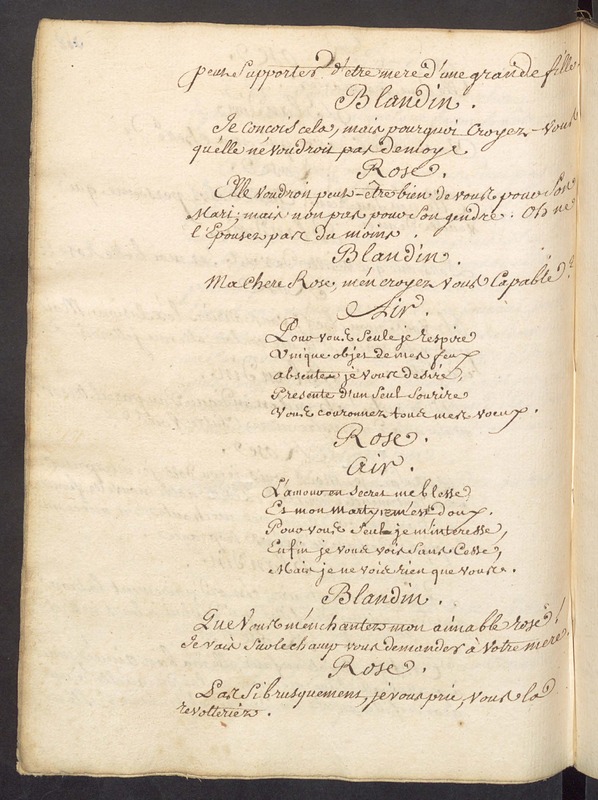 peut Supporter d'etre mere d'une grande fille.
Blandin.
Je concois cela, mais pourquoi croyez-vous
qu'elle ne voudroit pas de moy?
Rose.
Elle voudroit peut-être bien de vous pour son
Mari; mais non pas pour son gendre. Oh ne
l'Epousez pas du moins.
Blandin.
Ma chere Rose, m'en croyez vous Capable?
Air.
Pour vous seule je respire
Unique objet de mes feux
absente je vous desire,
Presente d'un seul sourire
Vous couronnez tous mes voeux.
Rose.
Air.
L'amour en secret me blesse
Et mon martyre m'est doux.
Pour vous seul je m'interesse,
Enfin je vous vois sans cesse,
Mais je ne vois rien que vous.
Blandin.
Que vous m'enchantez mon aimable rose!
Je vais sur le champ vous demander à votre mere.
Rose.
Pas si brusquement, je vous prie, vous la
revolteriez.